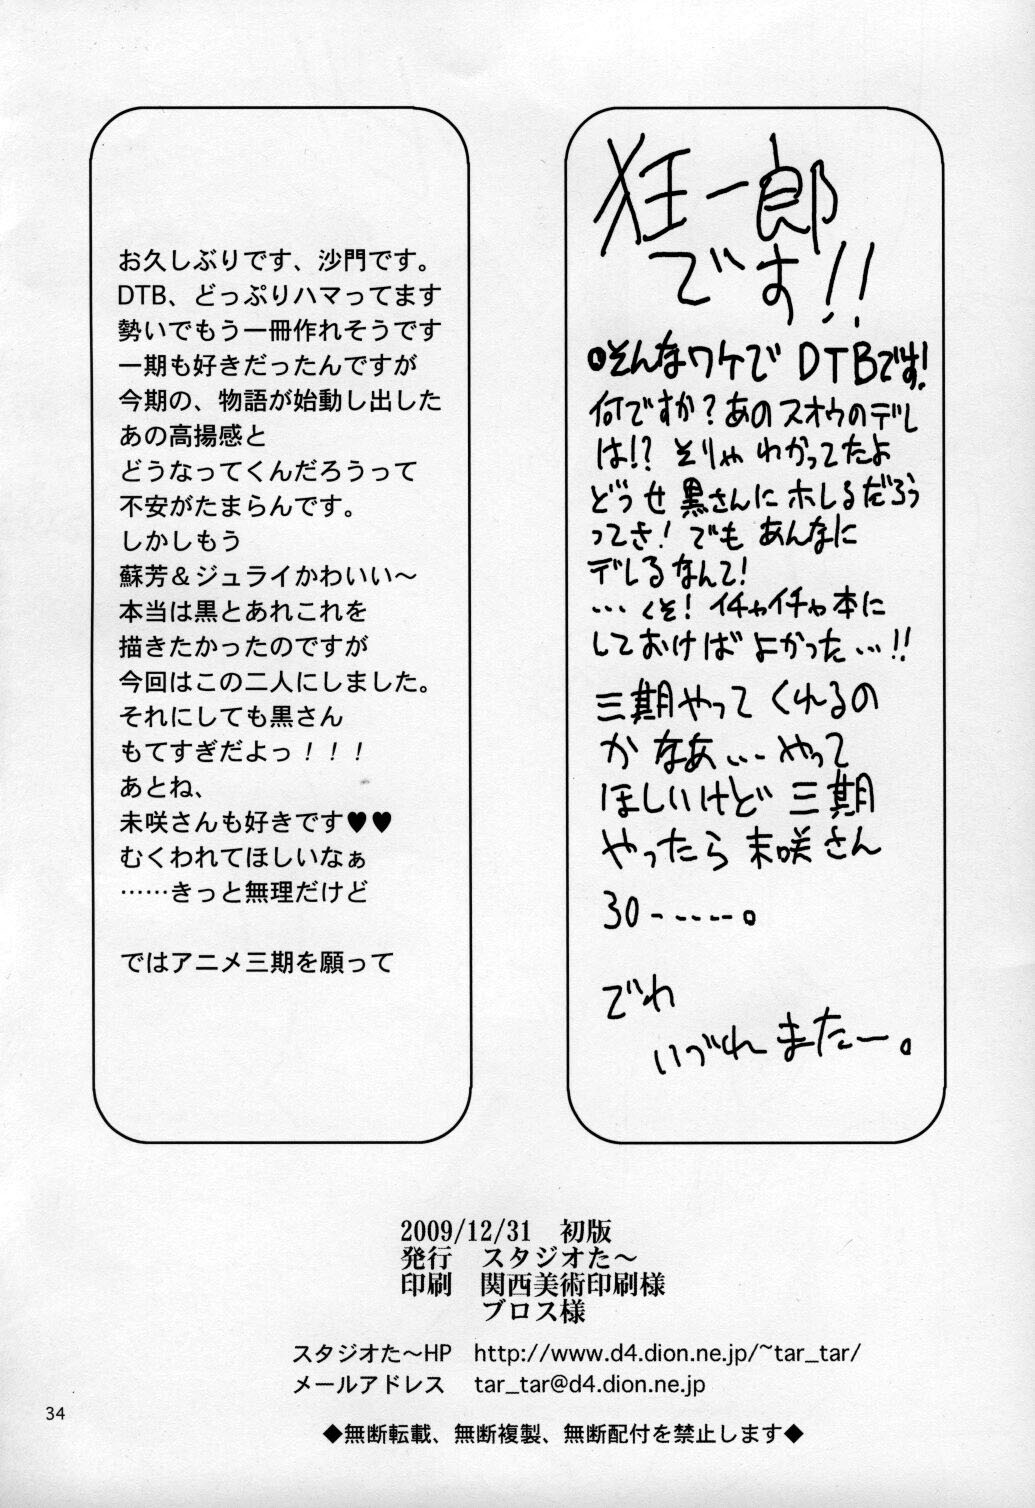 狂一郎
です!!
○そんなワケで DTBです!
何ですか?あのスオウのデレ
は!? そりゃ わかってたよ
どうせ 黒さんに ホレるだろう
ってさ! でも あんなに
デレるなんて!
…くそ! イチャイチャ本に
しておけば よかった…!!
三期やって くれるの
かなあ… やって
ほしいけど 三期
やったら 未咲さん
30-----。
でわ
いづれ またー。
お久しぶりです、沙門です。
DTB、どっぷりハマってます
勢いでもう一冊作れそうです
一期も好きだったんですが
今期の、物語が始動し出した
あの高揚感と
どうなってくんだろうって
不安がたまらんです。
しかしもう
蘇芳＆ジュライかわいい～
本当は黒とあれこれを
描きたかったのですが
今回はこの二人にしました。
それにしても黒さん
もてすぎだよっ！！！
あとね、
未咲さんも好きです♥♥
むくわれてほしいなぁ
……きっと無理だけど
ではアニメ三期を願って
2009/12/31 初版
発行 スタジオた～
印刷 関西美術印刷様
ブロス様
スタジオた～HP http://www.d4.dion.ne.jp/~tar_tar/
メールアドレス tar_tar@d4.dion.ne.jp
◆無断転載、無断複製、無断配付を禁止します◆
34